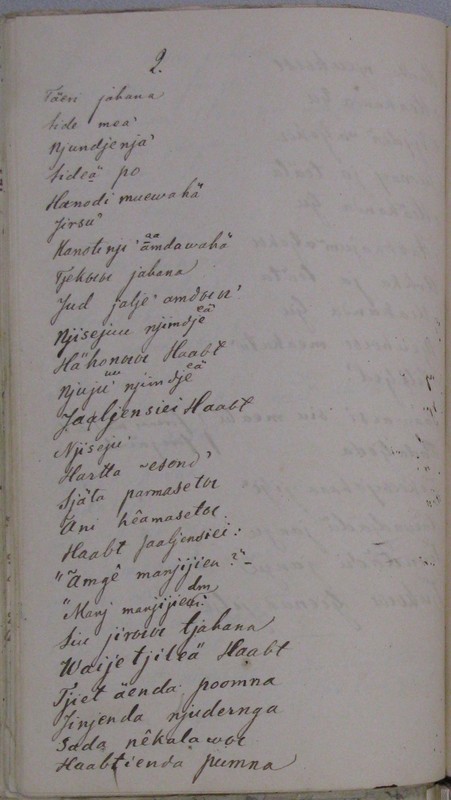 2.
Täeri jahana
Side mea'
Njundjenja'
Sideä po
Hænodi muewahä
Jirsu'
Kanotenji' ämdawahä
Tjekwe jahana
Jud jalje' amdwu'
Njisejuu njimdje eä
Hähonawe Haabt
Njuju' njimdje eä
Jaaljensiei Haabt
Njiseju'
Hartta -esond'
Sjäta parmasetoe
Ani hêamasetoe
Haabt jaaljensiei:
"ämgê manjijien?"-
"Manj manjijiedm
Siu jirwe tjahana
Waije tjileä Haabt
Tjiet äenda poomna
Jinjenda njudernga
Sada nêkalawoe
Haabtienda pumna